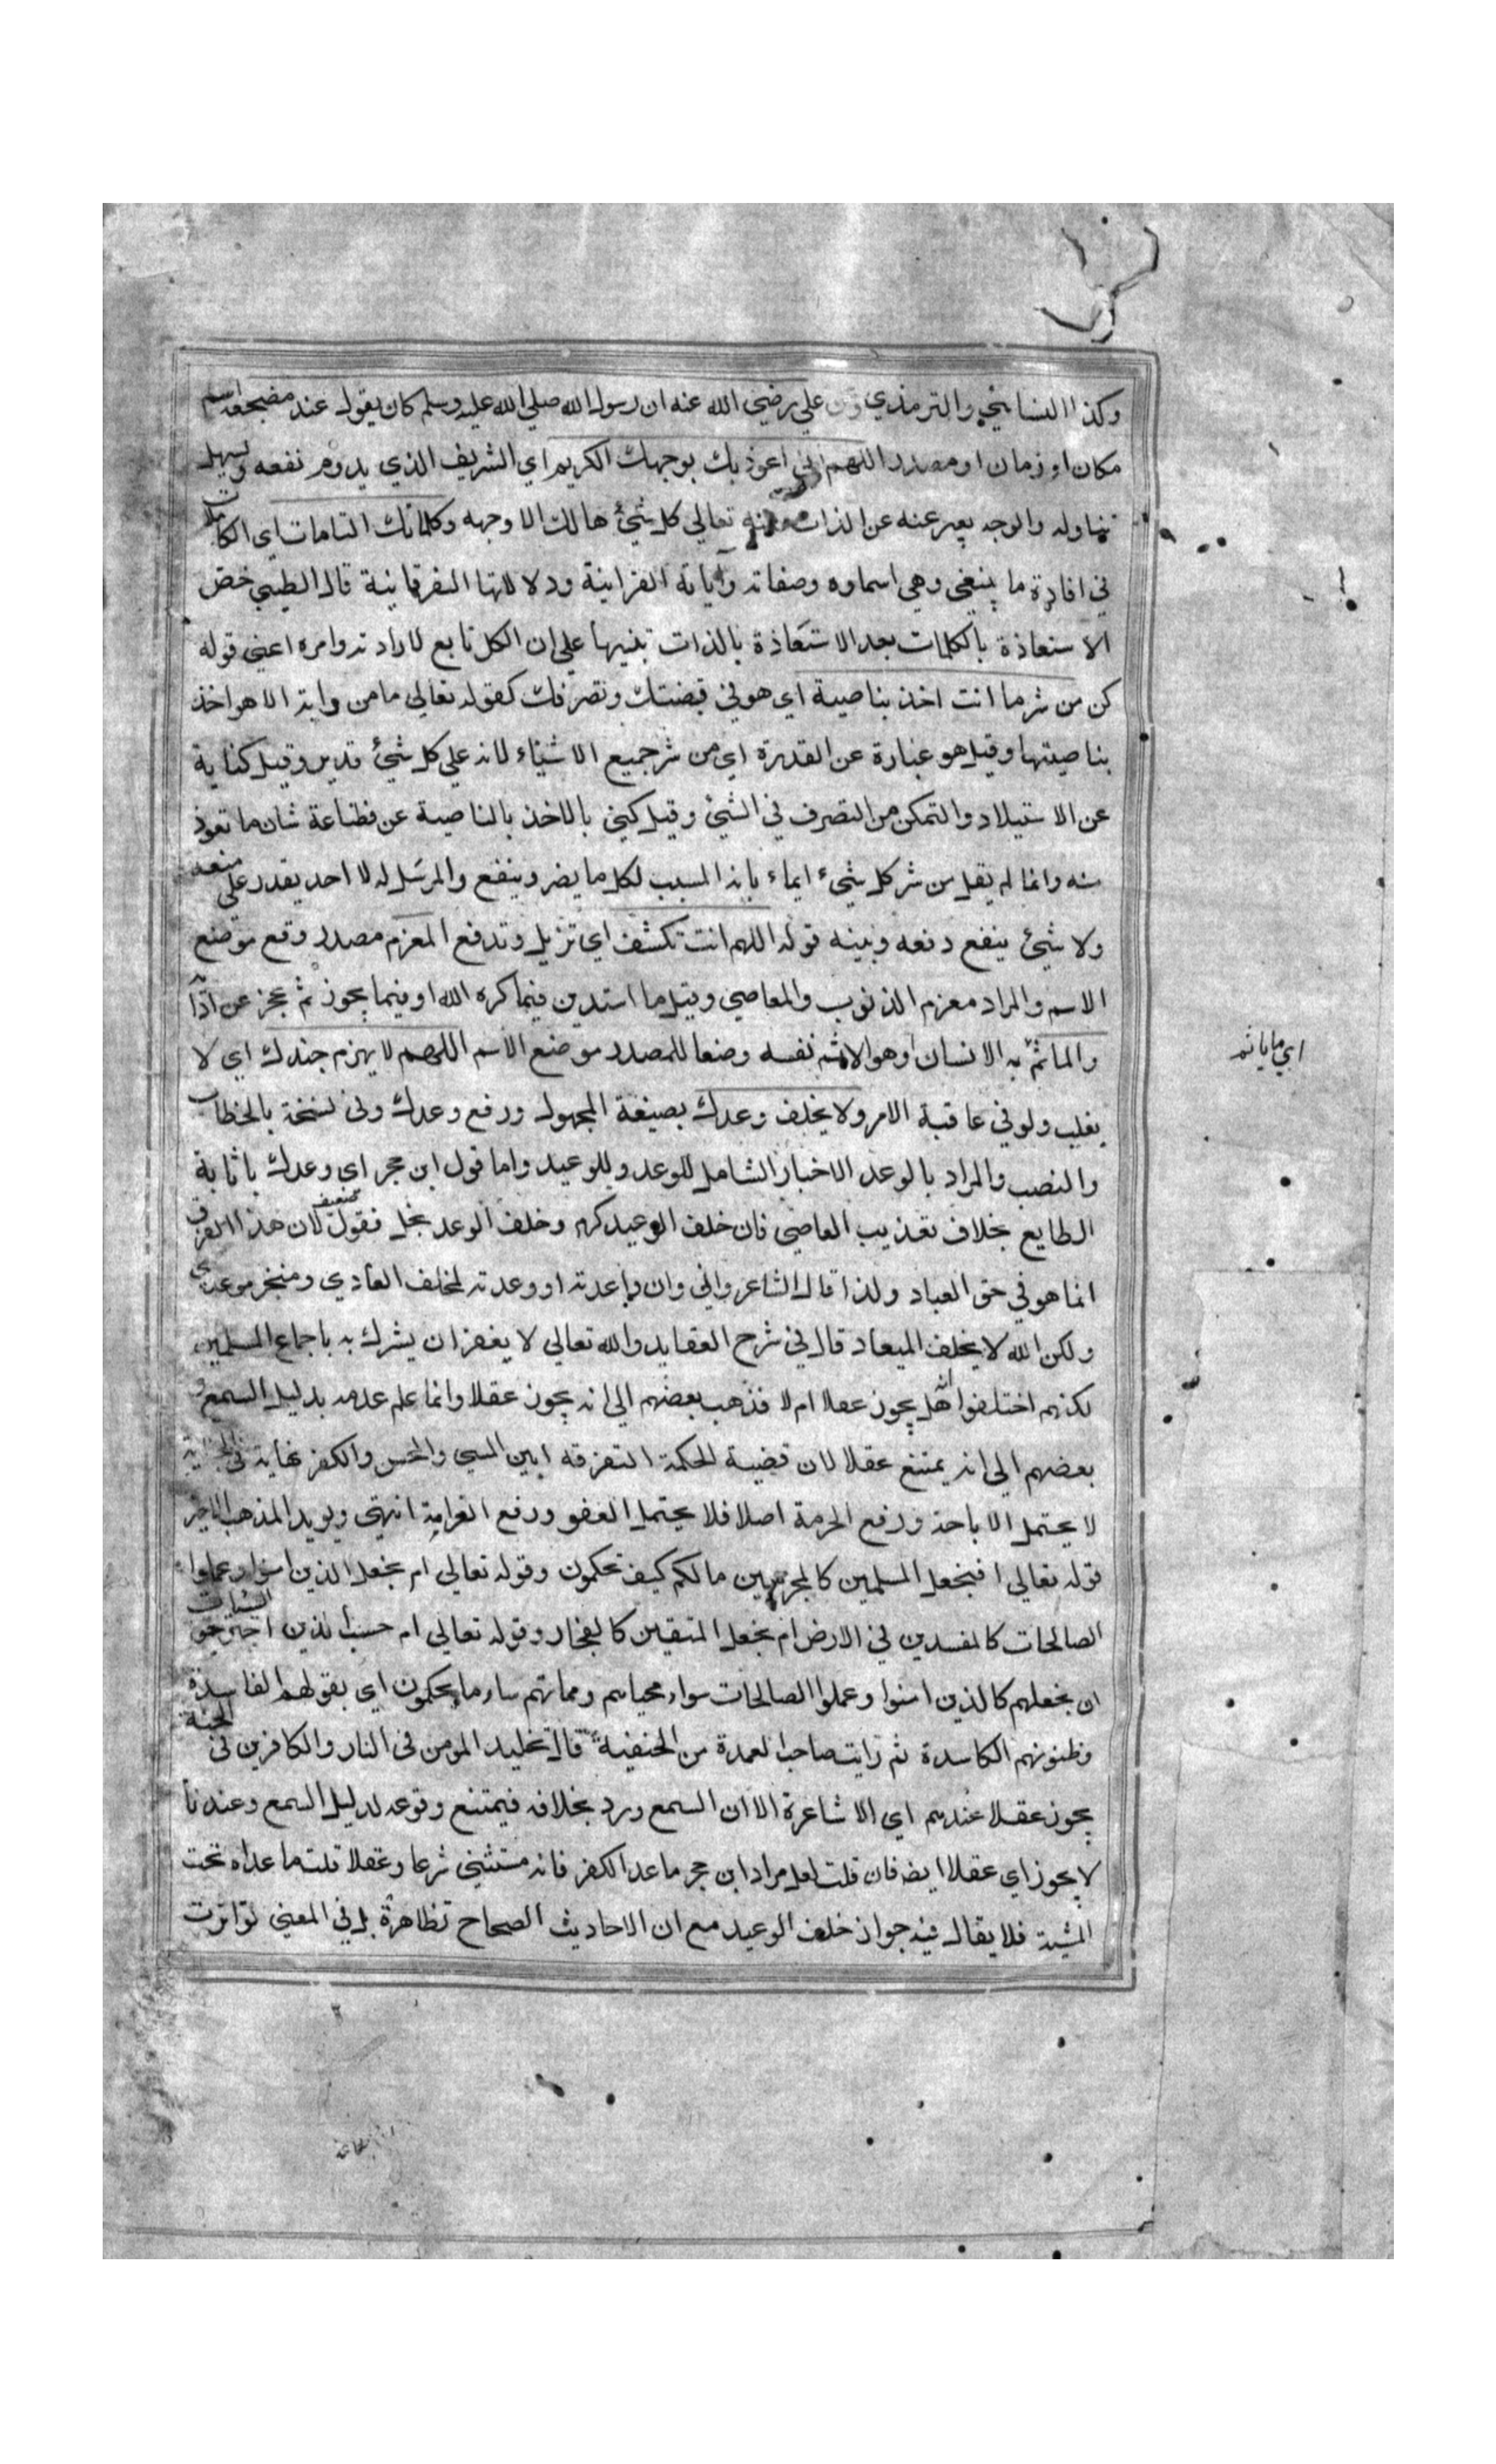 وكذا النسائي والترمذي وعن علي رضي الله عنه ان رسول الله صلى الله عليه وسلم كان يقول عند مضجعه اسم
مكان او زمان او مصدر اللهم اني اعوذ بك بوجهك الكريم اي الشريف الذي يدوم نفعه ويسهل
تناوله والوجه يعبر عنه عن الذات ومنه تعالي كل شئ هالك الا وجهه وكلماتك التامات اي الكاملات
في افادة ما ينبغي وهي اسماوه وصفاته وآياته القرانية ودلالاتها الفرقانية قال الطيبي خص
الاستعاذة بالكلمات بعد الاستعاذة بالذات تنبيها علي ان الكل تابع لارادته وامره اعني قوله
كن من شر ما انت اخذ بناصيية اي هو في قبضتك وتصرفك كقوله تعالي ما من دابة الا هو اخذ
بناصيتها وقيل هو عبارة عن القدرة اي من شر جميع الاشياء لانه علي كل شئ قدير وقيل كناية
عن الاستيلاد والتمكن من التصرف في الشئ وقيل كني بالاخذ بالناصية عن فظاعة شان ما تعوذ
منه وانما لم يقل من شر كل شيء ايماء بانه المسبب لكل ما يضر وينفع والمرسل له لا احد يقدر على منعه
ولا شئ ينفع دفعه وبينه قوله اللهم انت تكشف اي تزيل وتدفع المغرم مصدر وقع موضع
الاسم والمراد مغرم الذنوب والمعاصي وقيل ما استدين فيما كره الله او فيما يجوز ثم عجز عن اداه
والماثم به الانسان او هو الاثم نفسه وضعا للمصدر موضع الاسم اللهم لا يهزم جندك اي لا
اي ما ياثم
يغلب ولو في عاقبة الامر ولا يخلف وعدك بصيغة المجهول ورفع وعدك وفي نسخة بالخطاب
والنصب والمراد بالوعد الاخبار الشامل للوعد وللوعيد واما قول ابن حجر اي وعدك باثابة
الطايع بخلاف تعذيب العاصي فان خلف الوعيد كرم وخلف الوعد بخل فقول ضعيف لان هذا الفرق
انما هو في حق العباد ولذا قال الشاعر واني وان اعدته او وعدته لمخلف العادي ومنجز موعدي
ولكن الله لا يخلف الميعاد قال في شرح العقايد والله تعالي لا يغفر ان يشرك به باجماع المسلمين
لكنهم اختلفوا انه هل يجوز عقلا ام لا فذهب بعضهم الي انه يجوز عقلا وانما علم عدمه بدليل السمع و
بعضهم الي انه يمتنع عقلا لان قضية للحكمة التفرقة ابين المسي والمحسن والكفر نهاية في الجناية
لا يحتمل الاباحة ورفع الحرمة اصلا فلا يحتمل العفو ورفع الغرامة انتهي ويويد المذهب الاخير
قوله تعالي افنجعل المسلمين كالمجرمين ما لكم كيف تحكمون وقوله تعالي ام نجعل الذين امنوا وعملوا
الصالحات كالمفسدين في الارض ام نجعل المتقين كالفجار وقوله تعالي ام حسب الذين اجترحوا السيئات
ان نجعلهم كالذين امنوا وعملوا الصالحات سواء محياهم ومماتهم ساء ما يحكمون اي بقولهم الفاسدة
وظنونهم الكاسدة ثم رايت صاحب العمدة من الحنفية قال تخليد المومن في النار والكافرين في الجنة
يجوز عقلا عندهم اي الاشاعرة الا ان السمع ورد بخلافه فيمتنع وقوعه لدليل السمع وعندنا
لا يجوز اي عقلا ايضه فان قلت لعل مراد ابن حجر ما عدا الكفر فانه مستثني شرعا وعقلا قلت ما عداه تحت
المشية فلا يقال فيه جواز خلف الوعيد مع ان الاحاديث الصحاح تظاهرة بل في المعني تواترت